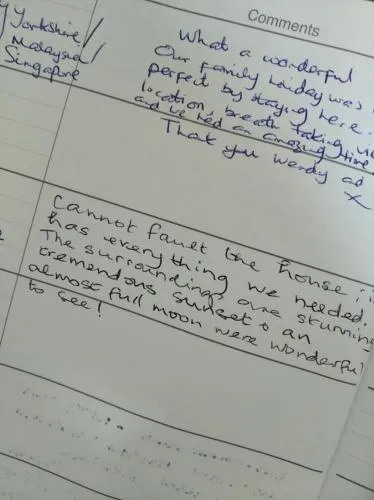 Comments
Yorkshire/
Malaysia/
Singapore
What a wonderful
Our family holiday was
perfect by staying here.
location, breath taking vie
and we had an amazing time
That you wendy ad
x
Cannot fault the house ; i
has everything we needed.
The surroundings are stunning
tremendous sunset & an
almost full moon were wonderful
to see!